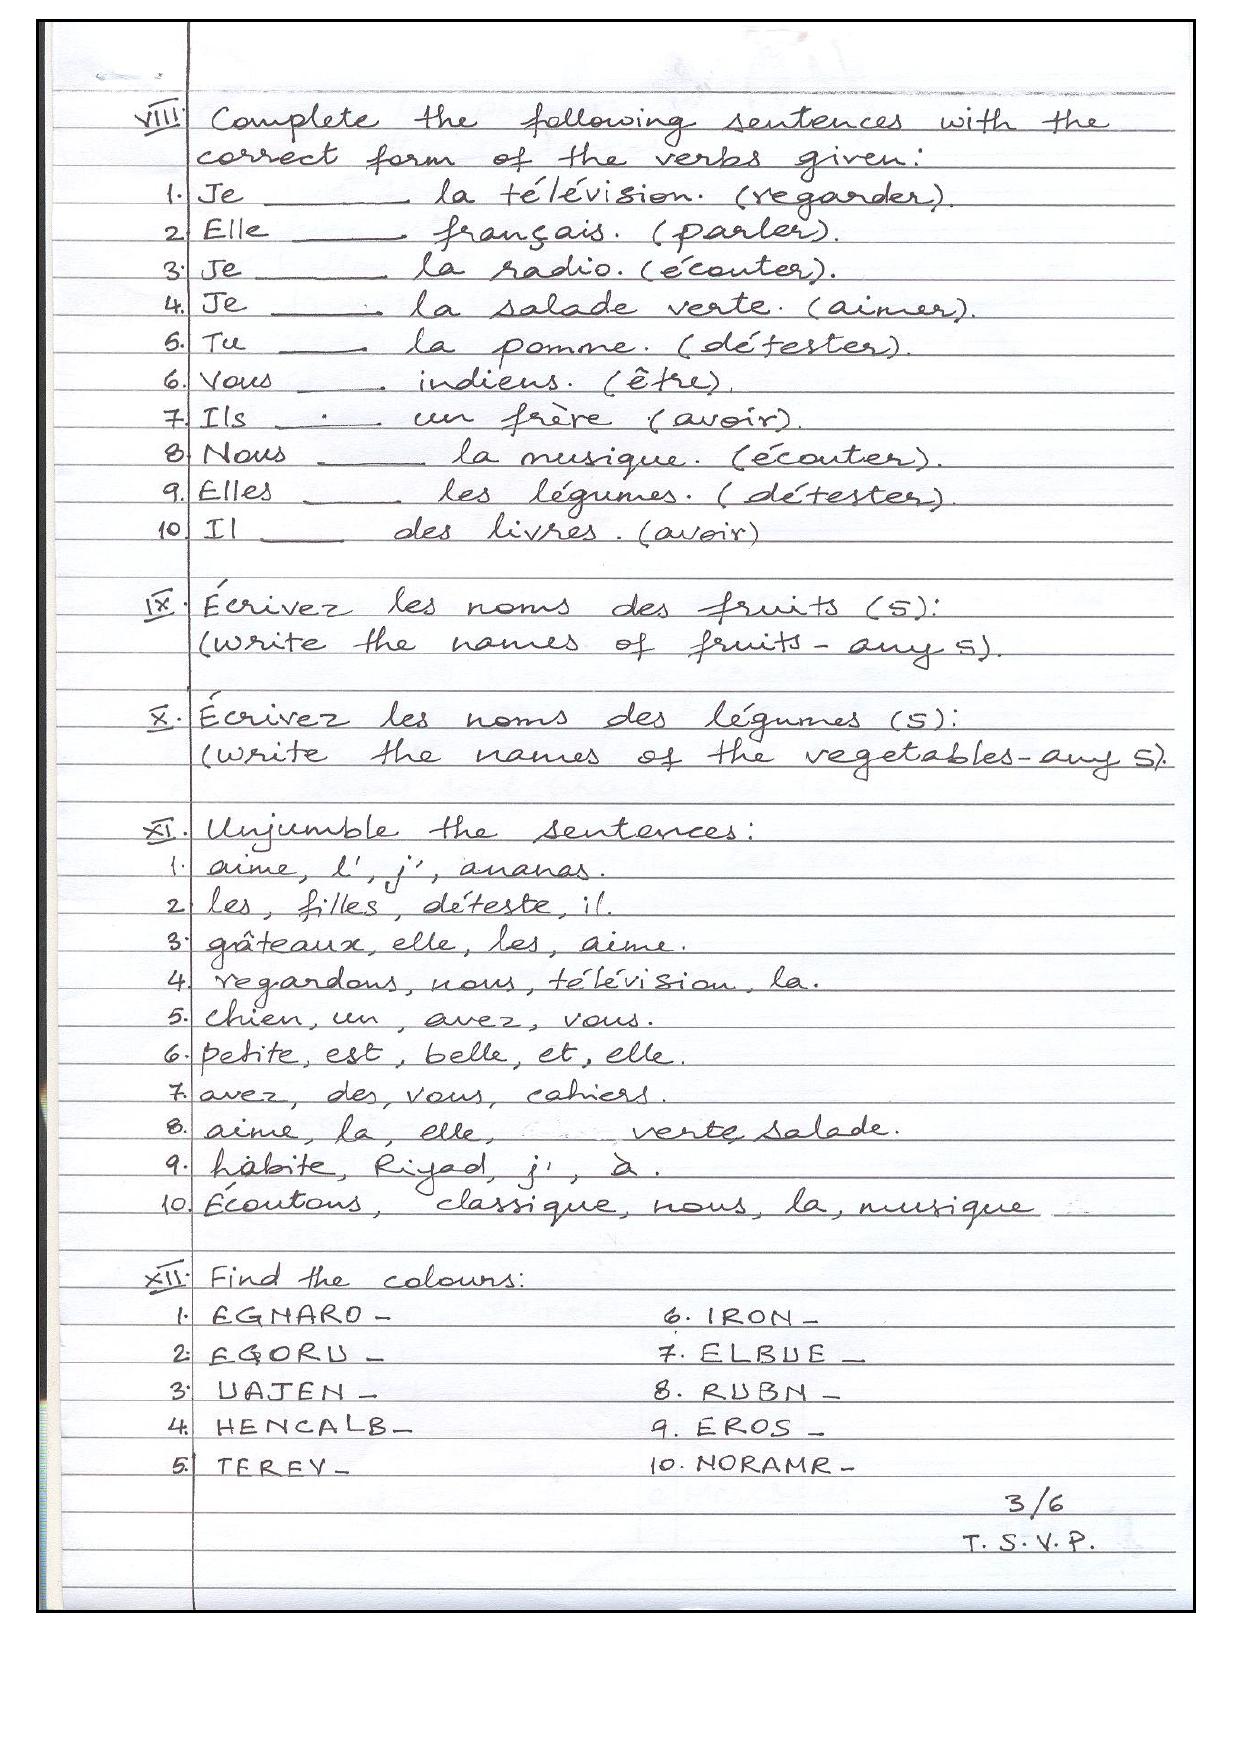 VIII. Complete the following sentences with the
correct form of the verbs given:
1. Je ______. la télévision. (regarder).
2. Elle ______. français. (parler).
3. Je ______. la radio. (écouter).
4. Je ______. la salade verte. (aimer).
5. Tu ______. la pomme. (détester).
6. Vous ______. indiens. (être).
7. Ils ______. un frère (avoir).
8. Nous ______. la musique. (écouter).
9. Elles ______. les légumes. (détester).
10. Il ______ des livres. (avoir)
IX. Écrivez les noms des fruits (5):
(Write the names of fruits - any 5).
X. Écrivez les noms des légumes (5):
(Write the names of the vegetables - any 5).
XI. Unjumble the sentences:
1. aime, l', j', ananas.
2. les, filles, déteste, il.
3. gâteaux, elle, les, aime.
4. regardons, nous, télévision, la.
5. chien, un, avez, vous.
6. petite, est, belle, et, elle.
7. avez, des, vous, cahiers.
8. aime, la, elle, verte, salade.
9. habite, Riyad, j', à.
10. Écoutons, classique, nous, la, musique
XII. Find the colours:
1. EGNARO - 6. IRON -
2. EGORU - 7. ELBUE -
3. UAJEN - 8. RUBN -
4. HENCALB - 9. EROS -
5. TEREV - 10. NORAMR -
3/6
T. S. V. P.